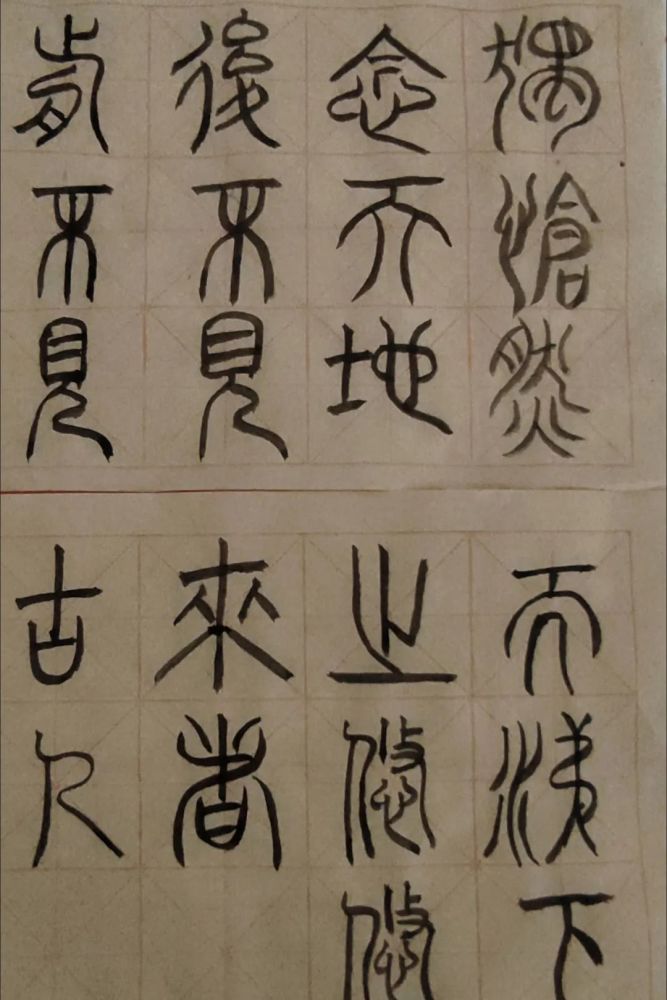 前不見古人
後不見來者
念天地之悠悠
獨愴然而涕下